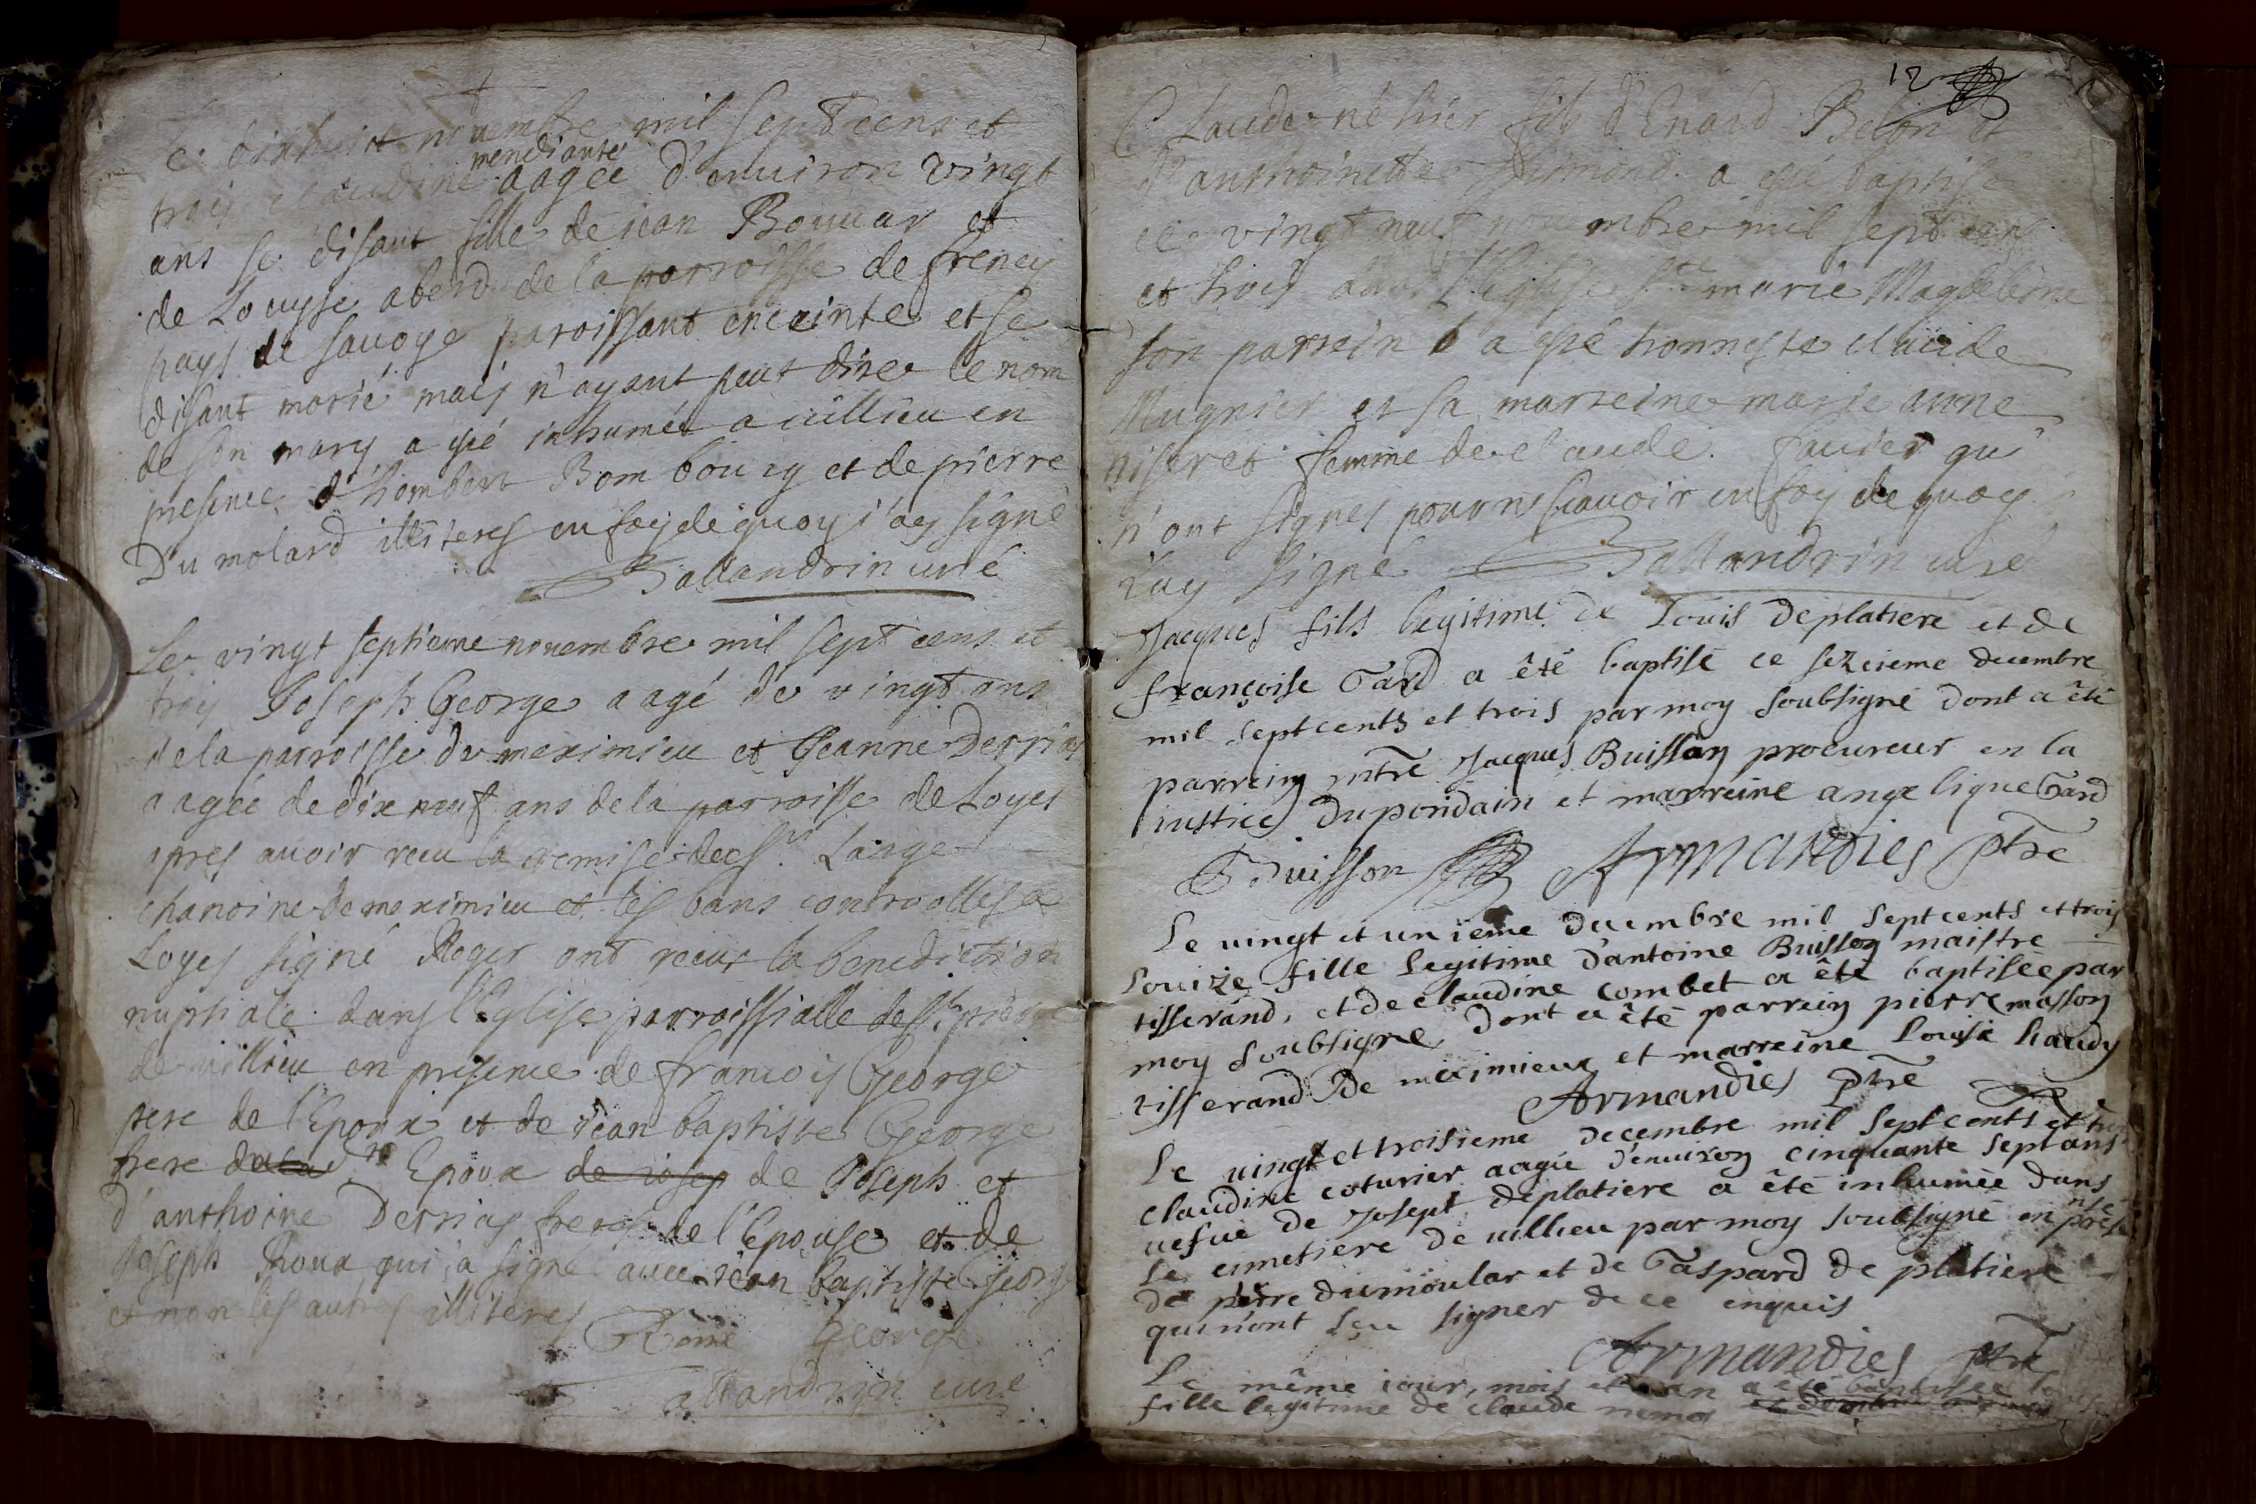 Le dixhuit novembre mil sept cens et
trois claudine mendiante aagée d'environ vingt
ans se disant fille de jean Bouuar et
de Louyse aberd de la parroisse de freney
pays de sauoye paroissant enceinte et se
disant marié mais n'ayant peut dire le nom
de son mary a esté inhumée a uillieu en
presence d'hombert Bombourg et de pierre
Du molard illiteres en foy de quoy j'ay signé
Ballandrin curé
Le vingt septieme nouembre mil sept cens et
trois Joseph George aagé de vingt ans
de la parroisse de meximieu et Jeanne Derrias
aagée de dix neuf ans de la parroisse de Loyes
apres auoir receu la remise de Sr. Large
chanoine de meximieu et les bans controolles a
Loyes signé Roger ont receu la benediction
nuptiale dans l'Eglise parroissialle de St. pierre
de uillieu en presence de francois George
pere de l'Epoux et de jean baptiste George
frere dud. Epoux de iosep de Joseph et
d'anthoine Derrias freres de l'Epouse et de
Joseph Roux qui a signé auec jean baptiste George
et non les autres illiteres
Roux George
allandrin curé
12
Claude né hier fils d'Enard Belon et
d'anthoinette a esté baptisé
ce vingt neuf nouembre mil sept cens
et trois dans l'Eglise Ste marie Magdeleine
son parrein a esté honneste claude
Mugnier et sa marreine marie anne
niseret femme de claude fauier qui
n'ont signes pour ne scauoir en foy de quoy
j'ay signé Ballandrin curé
Jacques fils legitime de Louis deplatiere et de
françoise Gard a êté baptisé ce sezieme decembre
mil septcents et trois par moy soubsigné dont a êté
parrein mtre Jacques Buisson procureur en la
iustice du pondain et marreine angelique Gard
Buisson Armandies ptre
Le uingt et unieme decembre mil septcents et trois
Louize fille legitime d'antoine Buisson maistre
tisserand, et de claudine combet a êté baptisée par
moy soubsigné, dont a êté parrein pierre masson
tisserand de meximieux et marreine Louise handy
Armandies ptre
Le uingt et troisieme decembre mil septcents et trois
claudine coturier aagée d'enuiron cinquante sept ans
uefue de Josept deplatiere a êté inhumée dans
le cimetiere de uillieu par moy soubsigné en presence
de pierre dumoular et de Gaspard de platiere
qui n'ont sçeu signer de ce enquis
Armandies ptre
Le même iour, mois et an a êté baptisée
fille legitime de claude